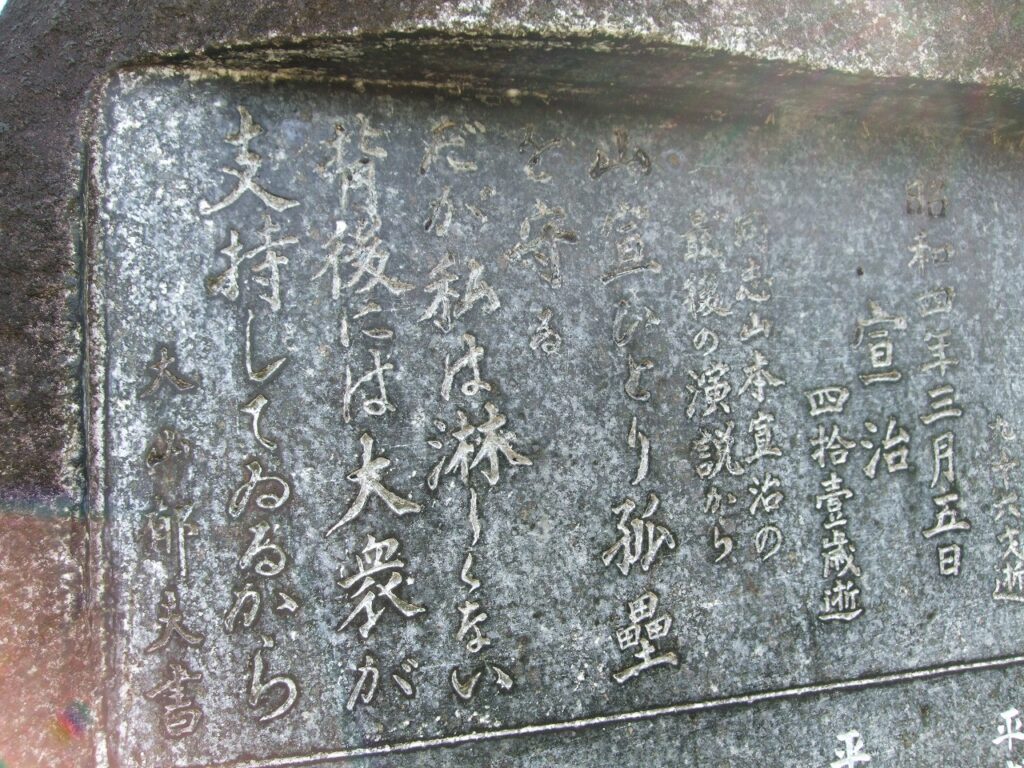 六才逝
昭和四年三月五日
宣治
四拾壹歳逝
同志山本宣治の
最後の演説から
山宣ひとり孤塁
を守る
だが私は淋しくない
背後には大衆が
支持してゐるから
大山郁夫書
平
平